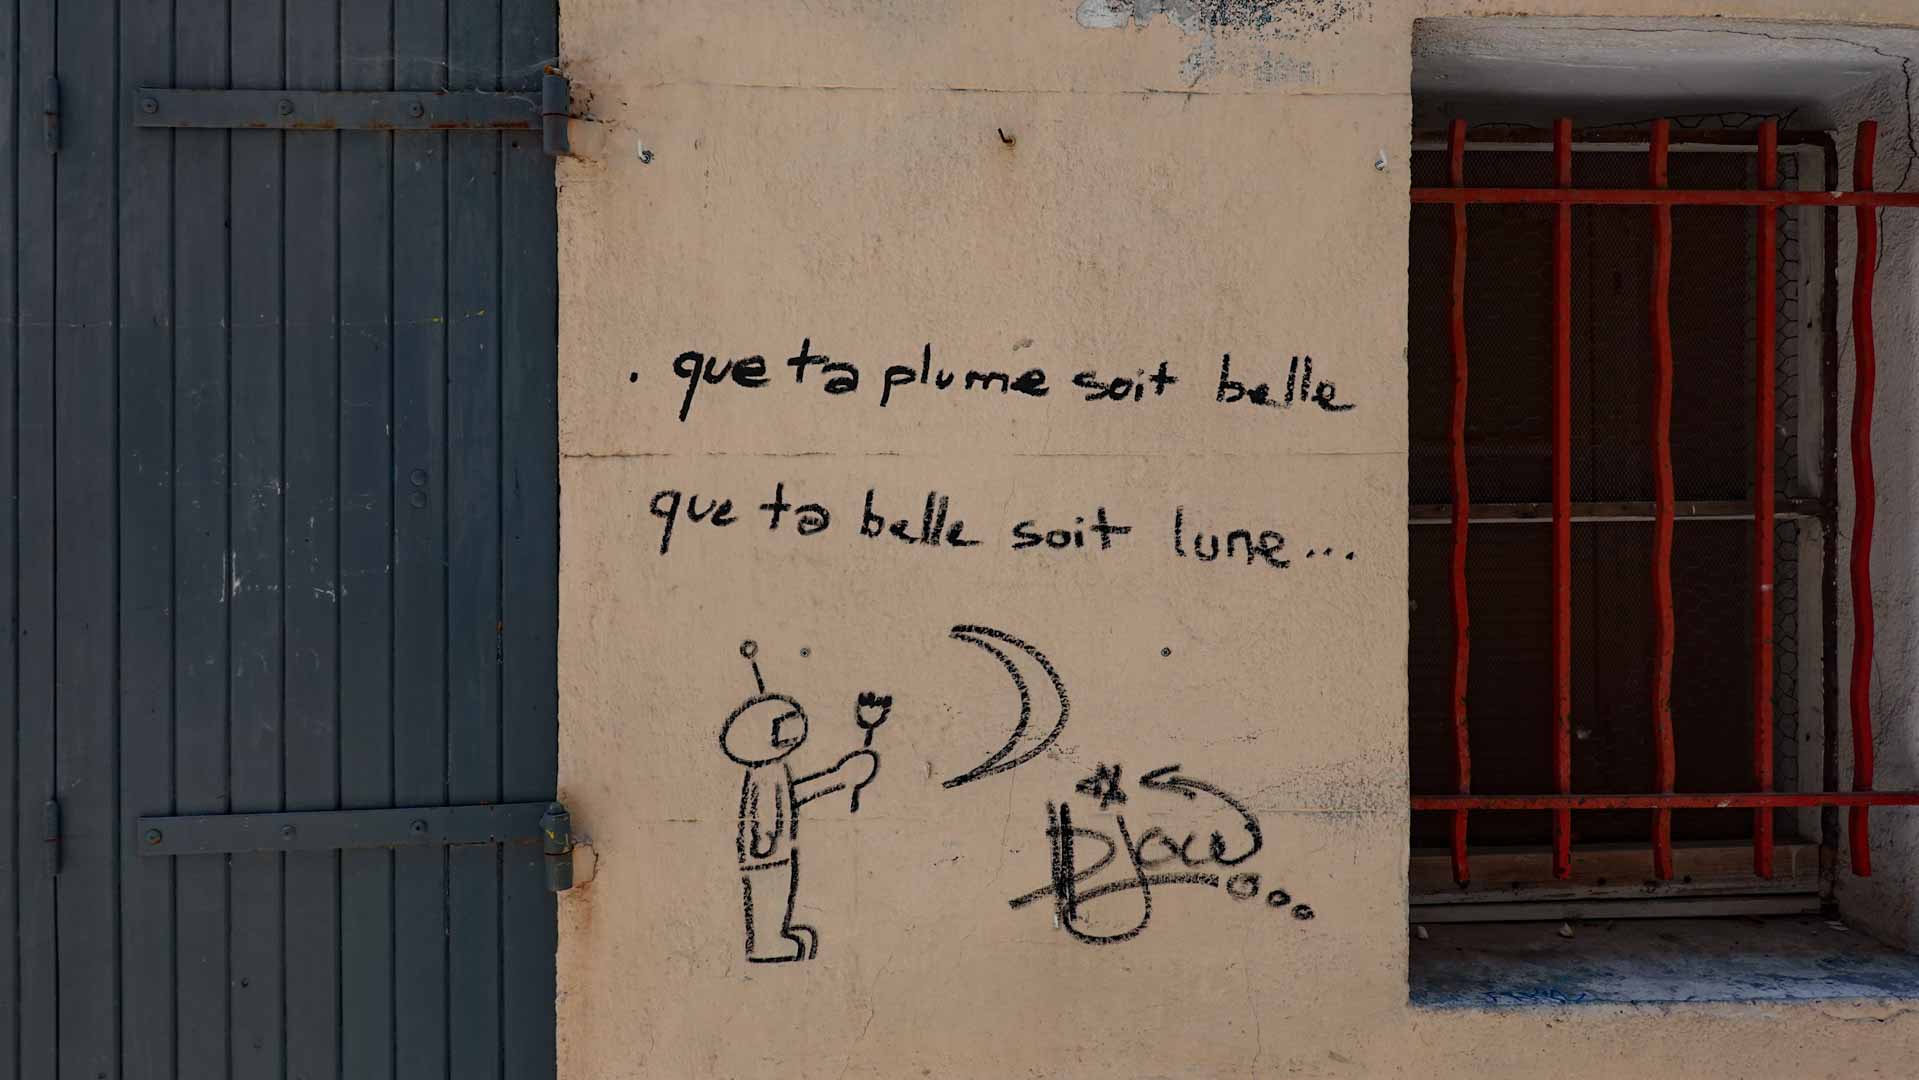 . que ta plume soit belle
que ta belle soit lune...